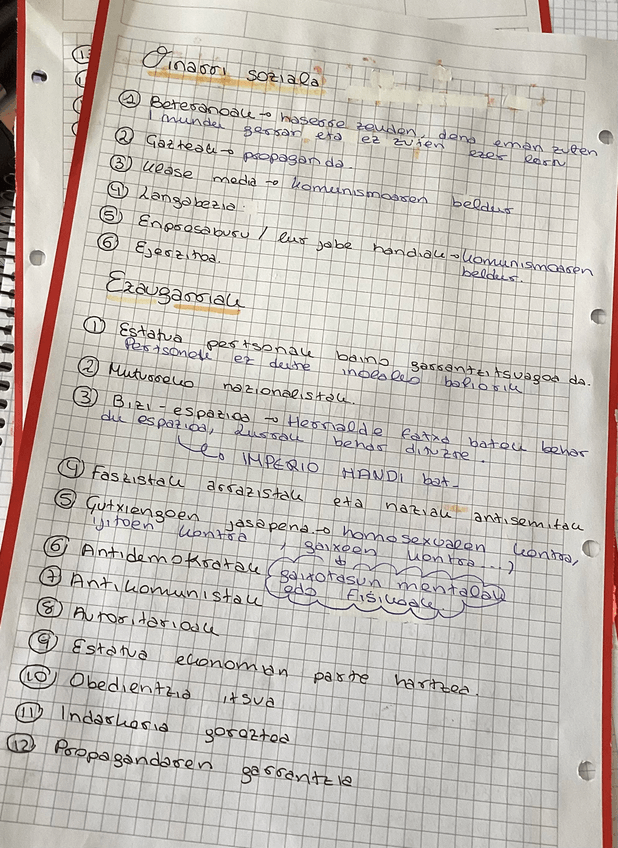 Oinarri soziala
① Beteranoak → haserre zeuden, dena eman zuten
I mundei gerran eta ez zuten ezer lortu
② Gazteak → propaganda.
③ klase media → komunismoaren beldur
④ Langabezia.
⑤ Enpresaburu / lur jabe handiak → komunismoaren
beldur.
⑥ Ejerzitoa.
Ezaugarriak
① Estatua pertsonak baino garrantzitsuagoa da.
Pertsonek ez dute inolako baliorik
② Muturreko nazionalistak.
③ Bizi-espazioa → Herrialde fatxa batek behar
du espazioa, lurrak behar dituzte.
↳ IMPERIO HANDI bat.
④ Faszistak arrazistak eta naziak antisemitak
⑤ Gutxiengoen jasapena → homosexualen kontra,
ijitoen kontra, gaixoen kontra...,
⑥ Antidemokratak
gaixotasun mentalak
edo fisikoak
⑦ Antikomunistak
⑧ Autoritarioak
⑨ Estatua ekonomian parte hartzea.
⑩ Obedientzia itsua
⑪ Indarkeria goraztea
⑫ Propagandaren garrantzia